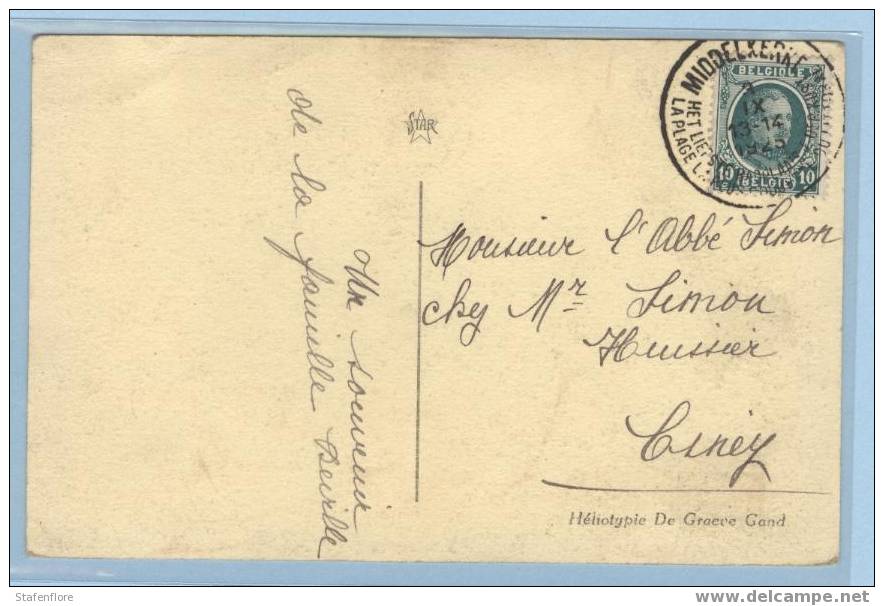 Un souvenir
de la famille Deville
STAR
MIDDELKERKE
HET LIEFSTE
LA PLAGE
IX
13-14
1925
BELGIQUE
10 BELGIË 10
Monsieur l'Abbé Simon
chez Mr Simon
Huissier
Ciney
Héliotypie De Graeve Gand
Stafenflore
www.delcampe.net